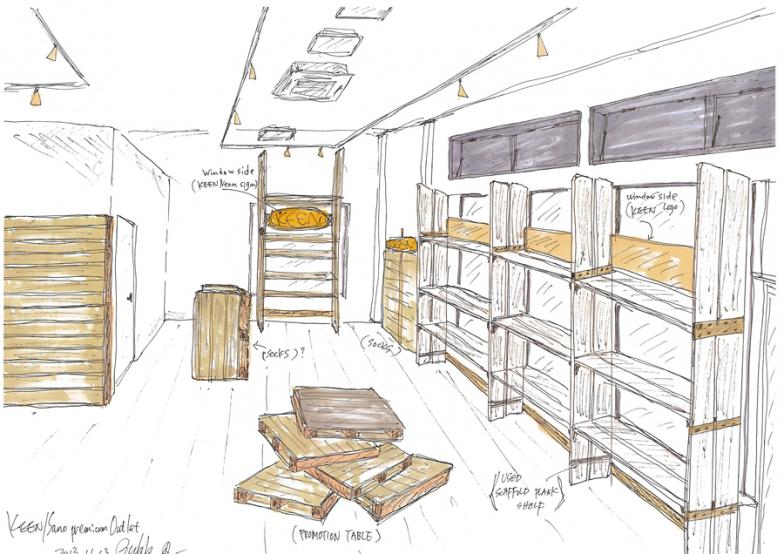 window side
(KEEN Neon sign)
KEEN
window side
(KEEN Logo)
(SOCKS)?
(SOCKS)
USED
SCAFFOLD PLANK
SHELF
(PROMOTION TABLE)
KEEN/Sano premium Outlet
2013.11.13